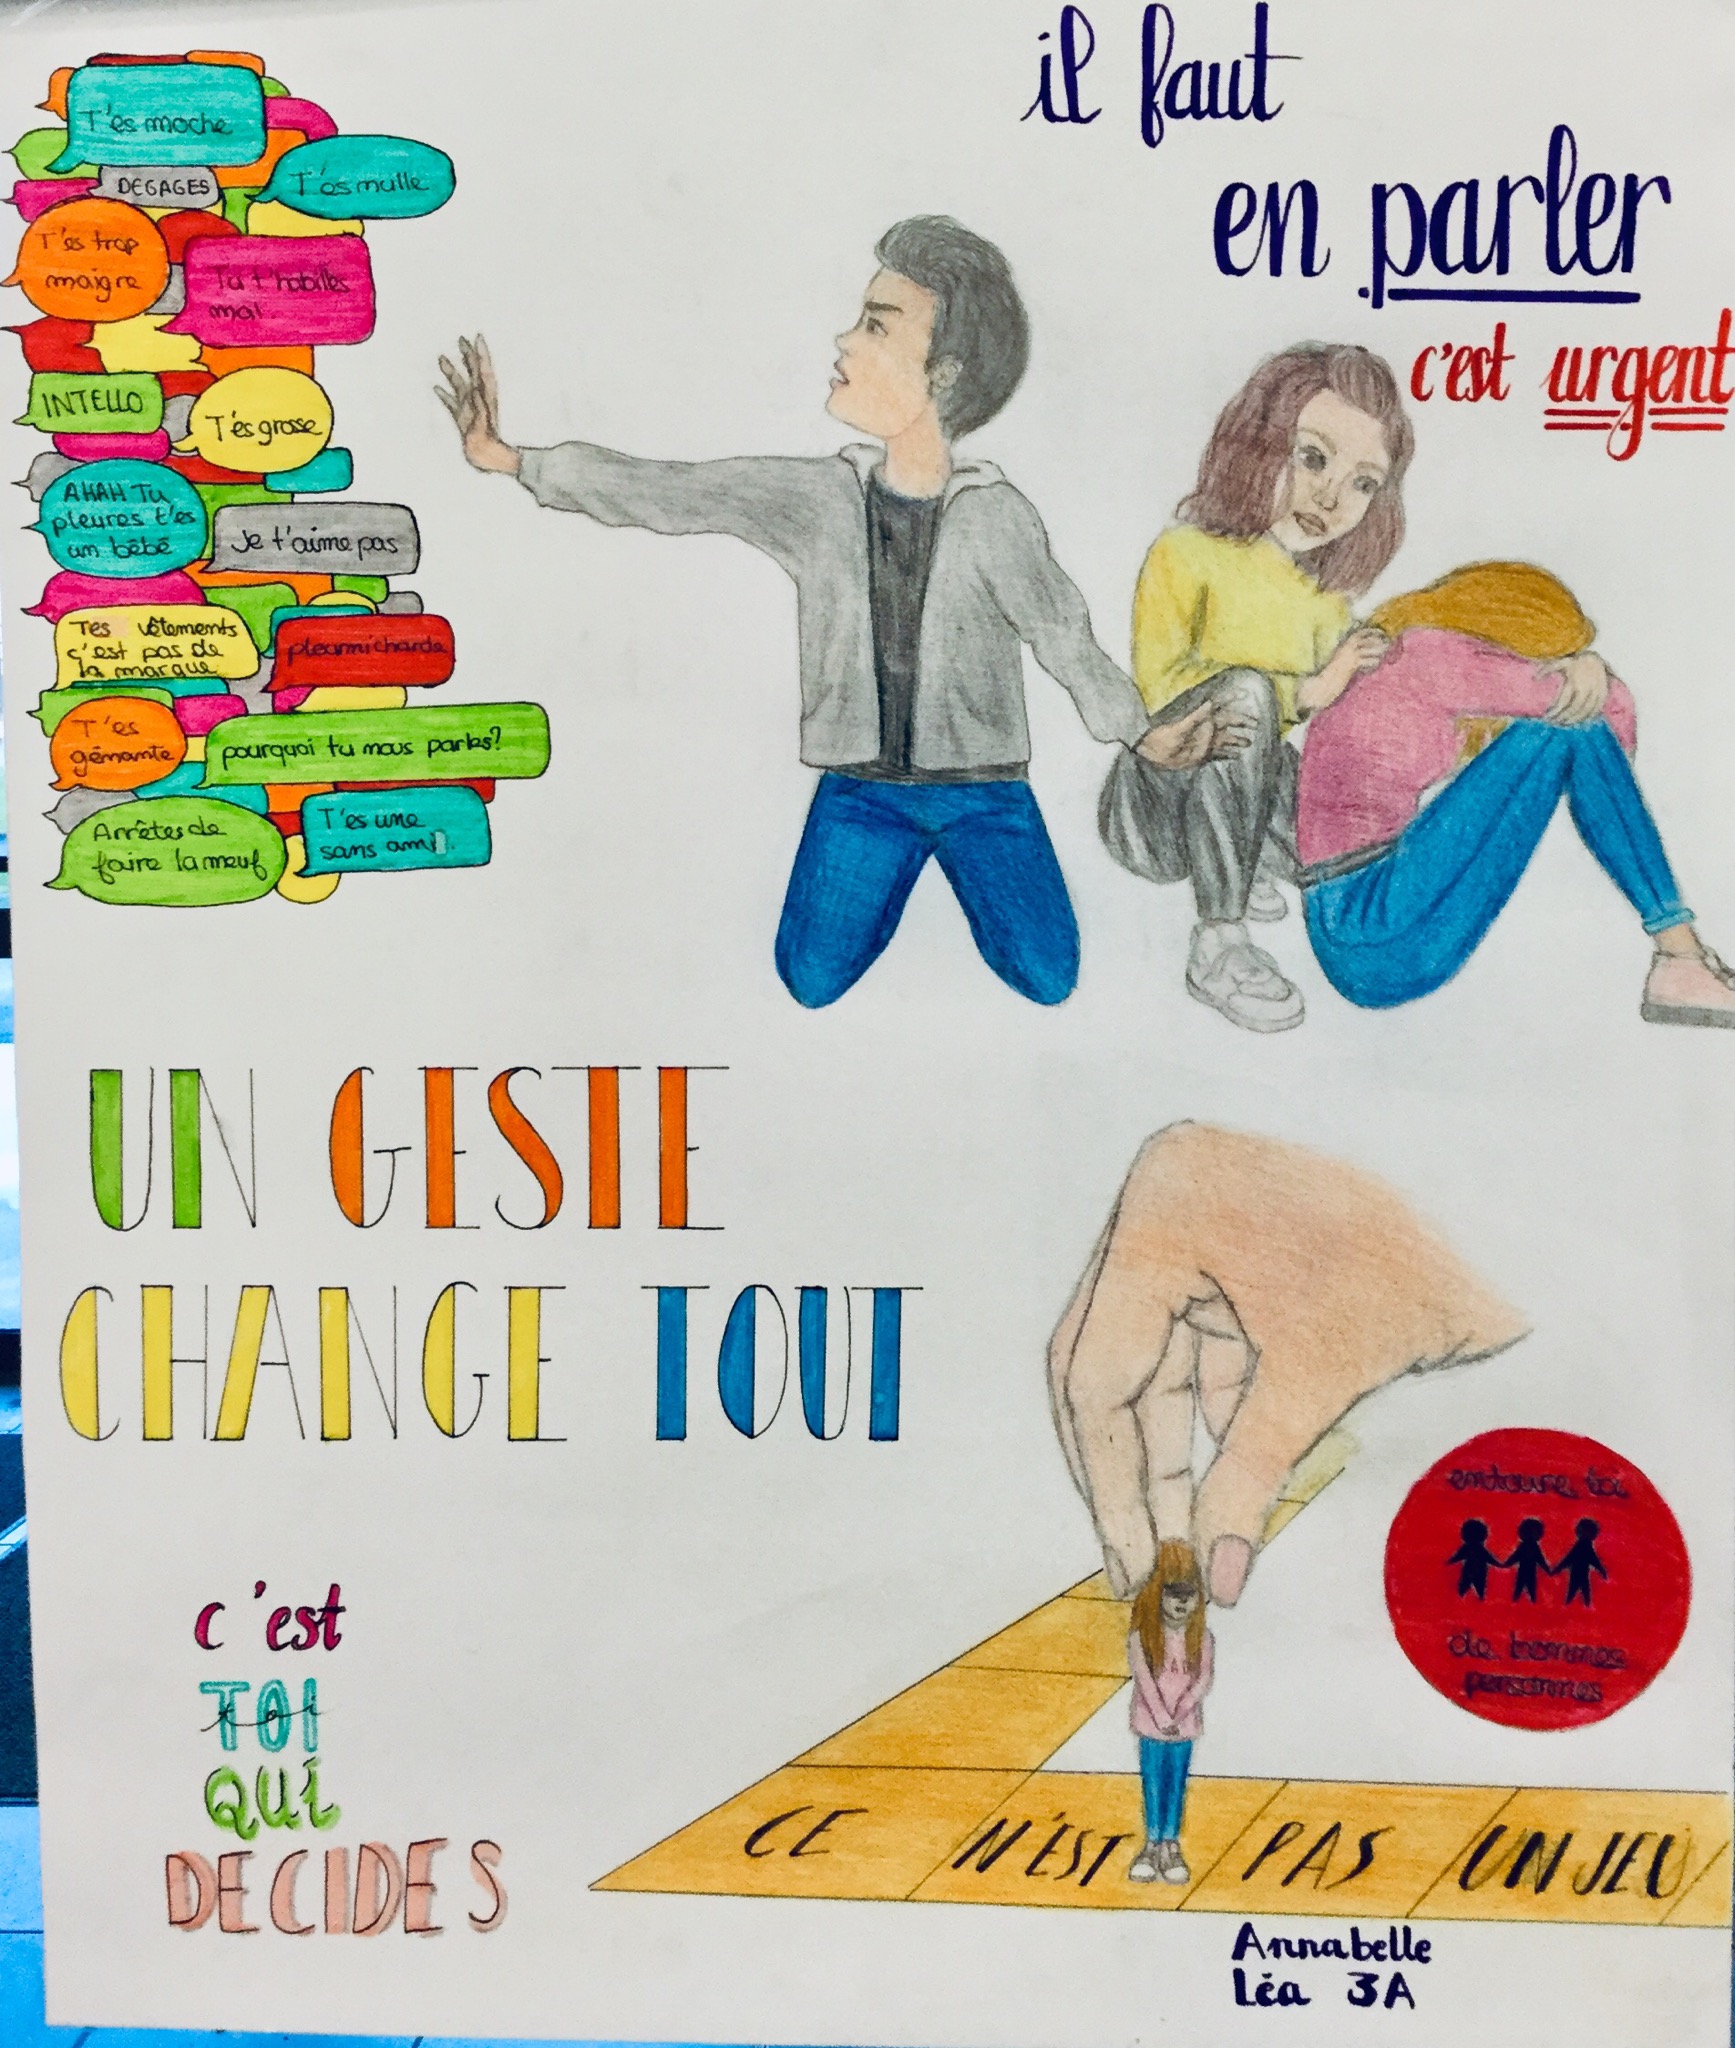 il faut
en parler
c'est urgent
T'es moche
DEGAGES
T'es nulle
T'es trop
maigre
Tu t'habilles
mal
INTELLO
T'es grosse
AHAH Tu
pleures t'es
un bébé
Je t'aime pas
Tes vêtements
c'est pas de
la marque
pleurnicharde
T'es
gênante
pourquoi tu nous parles?
Arrêtes de
faire la meuf
T'es une
sans ami.
UN GESTE
CHANGE TOUT
c'est
TOI
toi
QUi
DECIDES
entoure toi
de bonnes
personnes
CE N'EST PAS UN JEU
Annabelle
Léa 3A